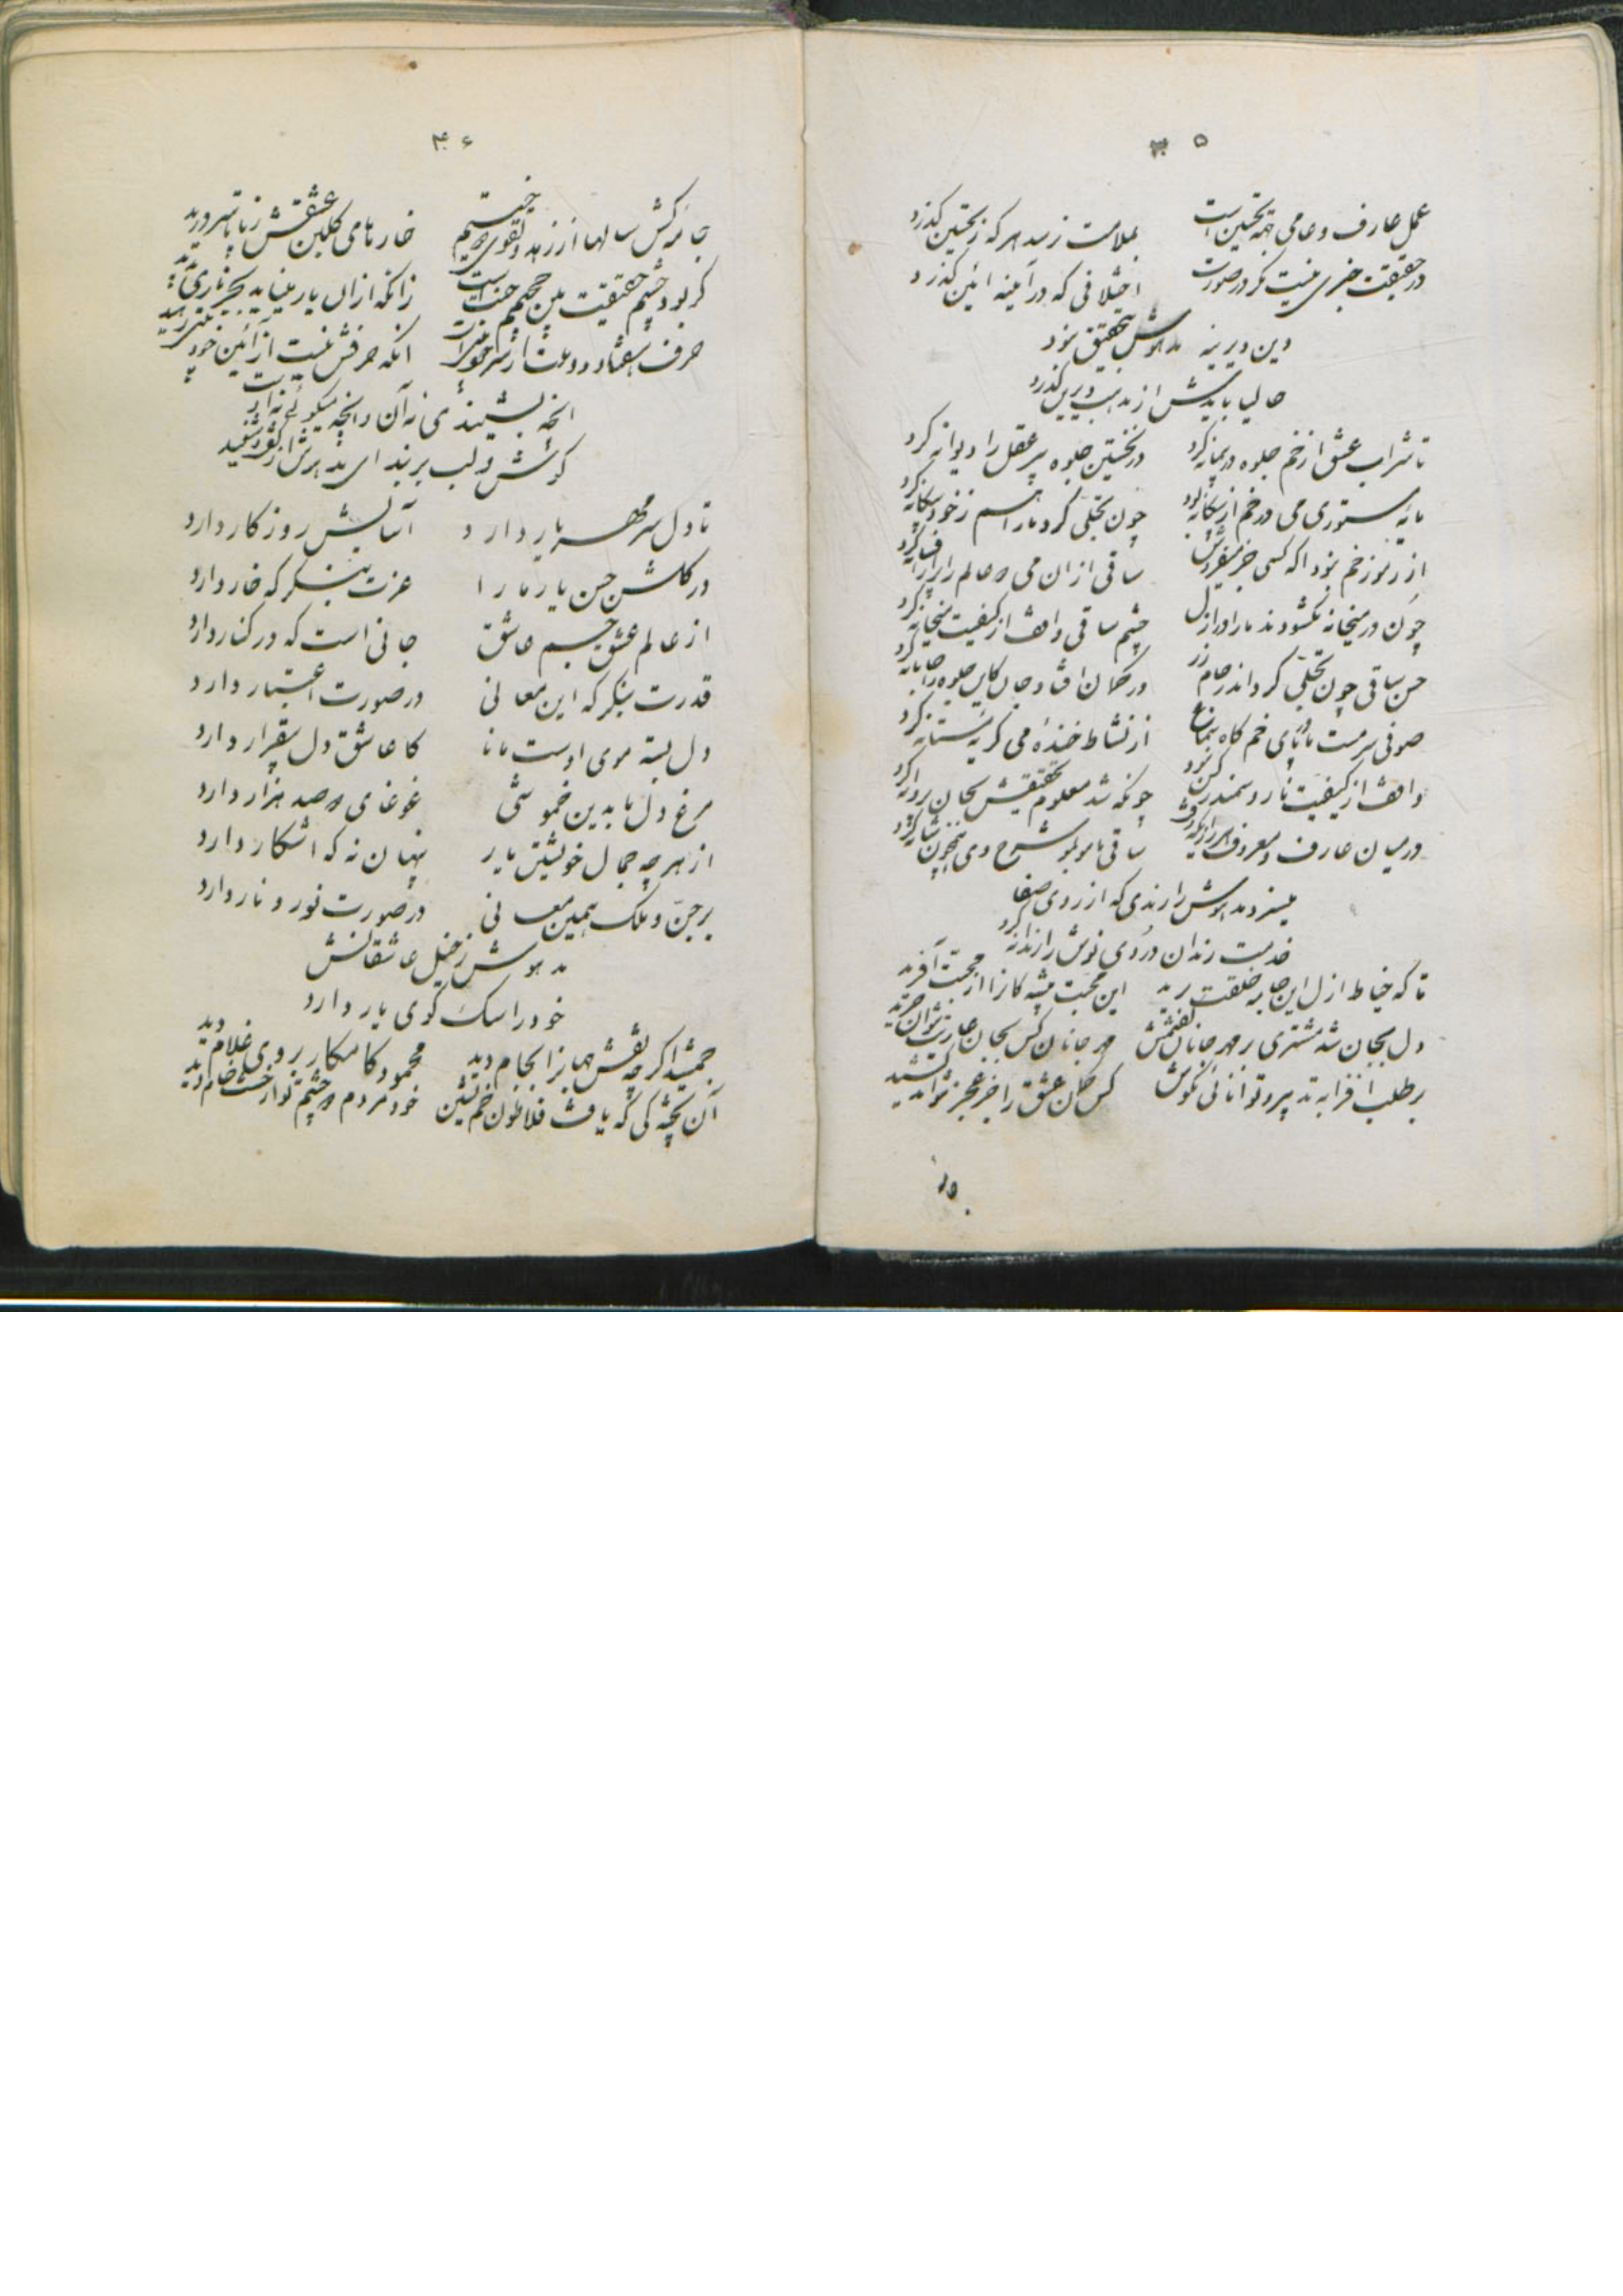 ۴۵
عمل عارف و عامی همه تحسین است بملامت نرسد هر که ز تحسین گذرد
در حقیقت خبری نیست مگر در صورت اختلافی که در آیینه آئین گذرد
دین دیرینه مدهوش بتحقیق نبود
حالیا بایدش از مذهب دیرین گذرد
تا شراب عشق از خم جلوه در پیمانه کرد در نخستین جلوه پیر عقل را دیوانه کرد
مایه مستوری می در خم از بیگانه بود چون تجلی کرد ما را هم ز خود بیگانه کرد
از رموز خم نبود آگه کسی جز میفروش ساقی از آن می دو عالم را پر از افسانه کرد
چون در میخانه نگشودند ما را در ازل چشم ساقی واقف از کیفیت میخانه کرد
حسن ساقی چون تجلی کرد اندر جام زر در گمان افتاد جان کاین جلوه را جانانه کرد
صوفی سرمست ما در پای خم گاه سماع از نشاط خنده می گریه مستانه کرد
واقف از کیفیت نار و سمندر کس نبود چونکه شد معلوم تحقیقش بجان پروانه کرد
در میان عارف و معروف ساقی مو بمو شرح
میسزد مدهوش را رندی که از روی صفا
خدمت رندان دردی نوش را رندانه کرد
تا که خیاط ازل این جامه خلقت برید این محبت پیشه گان را از محبت آفرید
دل بجان شد مشتری بر مهر جانان گفتمش مهر جانان کس بجان عاریت نتوان خرید
بر طلب افزا به تدبیر و توانائی مکوش کس کمان عشق را جز عجز نتواند کشید
۴۶
جامه کش سالها از زهد و تقوی دوختیم خارهای گلبن عشقش ز پا تا سر درید
گر بود چشم حقیقت بین جحیم جنت است زانکه از آن یار
حرف هفتاد و دو ملت آنکه حرفش نیست از آئین خود
آنچه بشنیدی نه آن و آنچه میگوئی نه این
گوش و لب بربند ای مدهوش از گفت و شنید
تا دل سر مهر یار دارد آسایش روزگار دارد
در گلشن حسن یار ما را عزت بنگر که خار دارد
از عالم عشق جسم عاشق جانی است که در کنار دارد
قدرت بنگر که این معانی در صورت اعتبار دارد
دل بسته موی اوست مانا کاعاشق دل بیقرار دارد
مرغ دل ما بدین خموشی غوغای دو صد هزار دارد
از هر چه جمال خویشتن یار پنهان نه که آشکار دارد
بر جن و ملک همین معانی در صورت نور و نار دارد
مدهوش ز خیل عاشقانش
خود را سگ کوی یار دارد
جمشید اگر چه نقش جهان را بجام دید محمود کامکار بروی غلام دید
آن پختگی که یافت فلاطون خم نشین خود مردم دو چشم تو از خشت خام دید